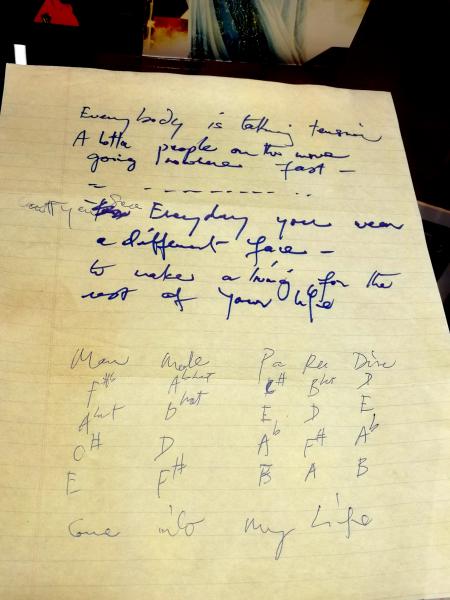 Everybody is talking tension
A lotta people on the move
going nowhere fast –
– – – – – – – – – ..
Everyday you wear
a different face –
to make a living for the
rest of your life
Man Made Pa Ra Dise
F#6 Abhat C# Bhat D
Ahat Bhat E D E
C# D Ab F# Ab
E F# B A B
Come into My Life